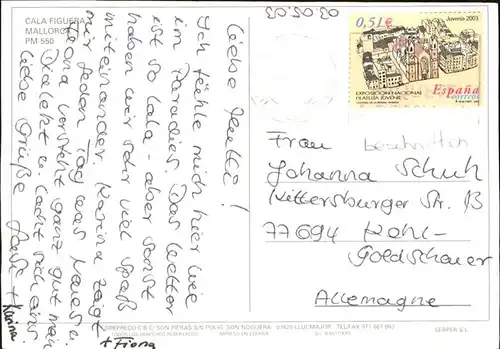 CALA FIGUERA
MALLORCA
PM 550
03.05.03
0,51€
Juvenia 2003
EXPOSICIÓN NACIONAL
FILATELIA JUVENIL
España
correos
Liebe Mutti!
Ich fühle mich hier wie
im Paradies. Das Wetter
ist so lala - aber sonst
haben wir sehr viel Spaß
miteinander. Karina sagt
mir jeden Tag was Neues u.
Fiona versteht ganz gut mein
Dialekt u. lacht sich eins
Liebe Grüße
+ Karina
+ Fiona
Frau
beschnitten
Johanna Schuh
Kittersburger Str. 13
77694 Kehl-
Goldscheuer
Allemagne
SON NOGUERA
07620 LLUCMAJOR
IMPRESO EN ESPAÑA